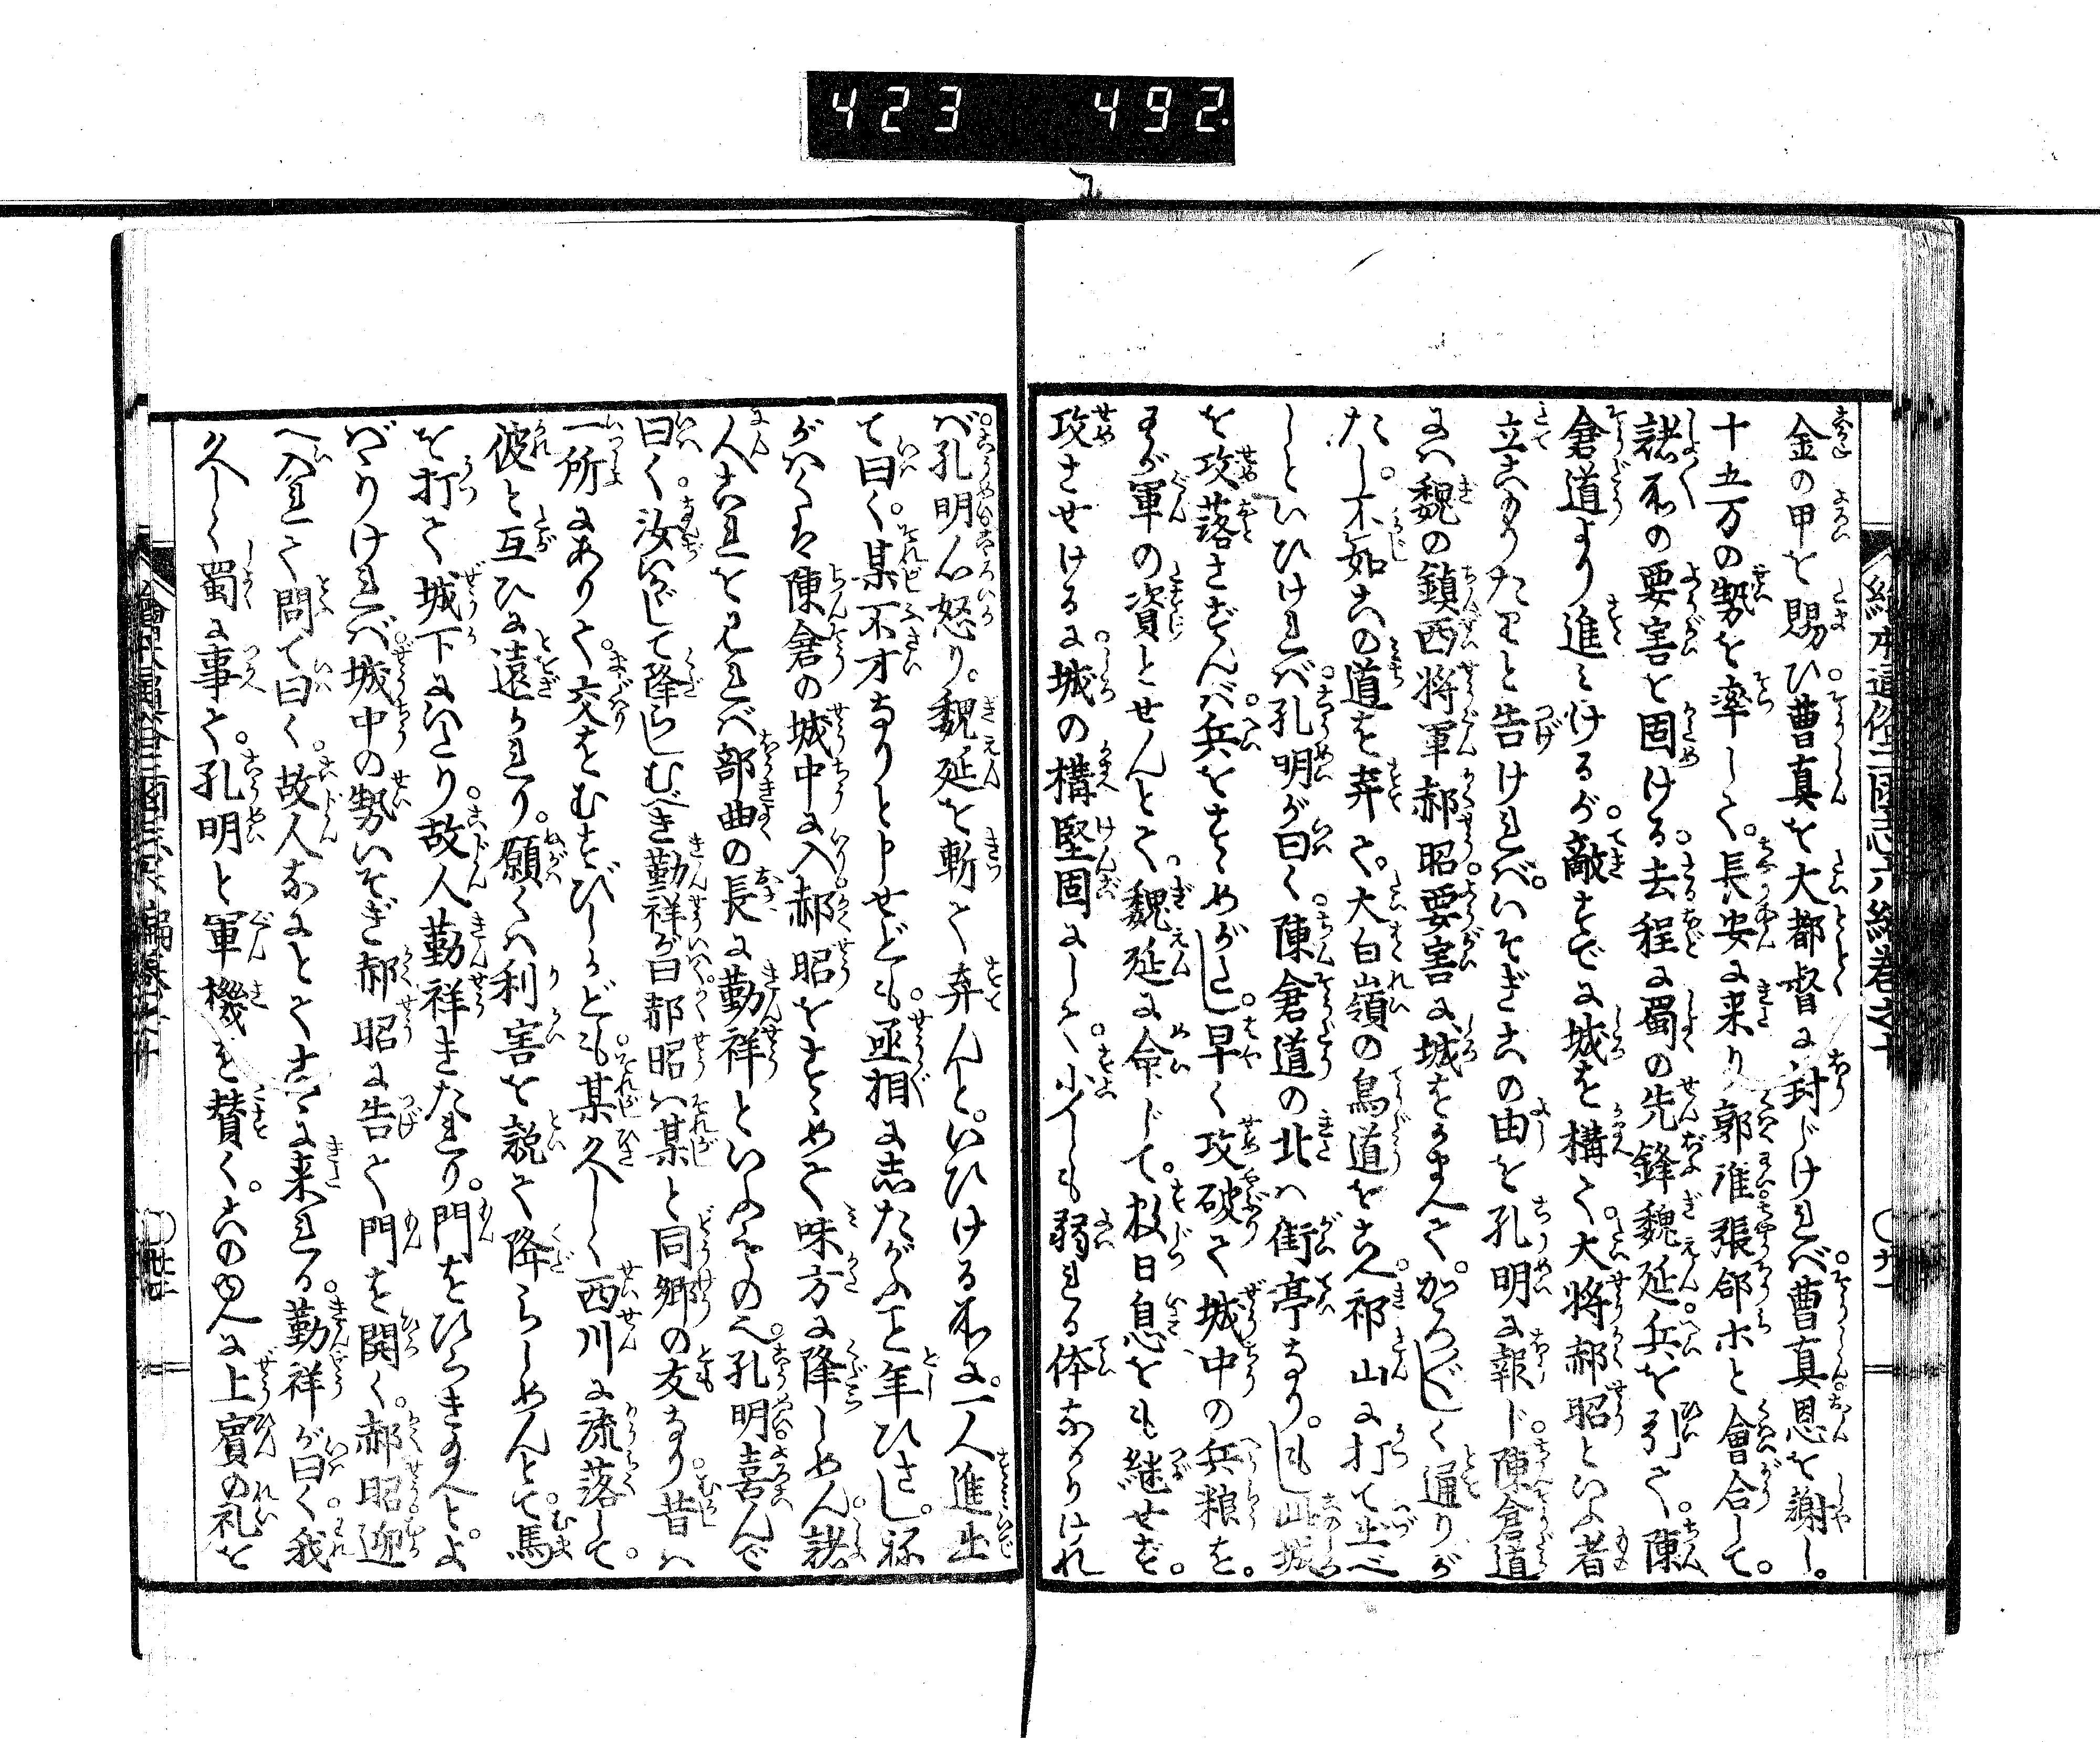 423 492
繪本通俗三國志六編卷之十
金の甲を賜ひ曹真を大都督に封じければ曹真恩を謝し。
十五万の勢を率して。長安に来り郭淮張郃ホと會合して。
諸所の要害を固ける去程に蜀の先鋒魏延兵を引て。陳
倉道より進ミけるが。敵すでに城を構て大将郝昭といふ者
立こもりたりと告ければ。いそぎ此由を孔明に報じ陳倉道
には魏の鎮西将軍郝昭要害に城をかまへて。かろ〲しく通りが
たし。不如この道を弃て。大白嶺の鳥道をこへ祁山に打て出べ
しといひければ孔明が曰く陳倉道の北は街亭なり。もし此城
を攻落さずんば兵をすゝめがたし早く攻破て城中の兵粮を。
わが軍の資とせんとて魏延に命じて。数日息をも継せず。
攻させけるに城の構堅固にして。少しも弱れる体なかりけれ
ば孔明心怒り。魏延を斬て弃んと。いひける所に。一人進出
て曰く。某不才なりと申せども。丞相にしたがふこと年ひさし。
がはくは陳倉の城中に入郝昭をすゝめて味方に降しめん諸
人これを見れば部曲の長に勤祥といふもの也孔明喜んで
曰く。汝いかゞして降らしむべき勤祥が曰郝昭は某と同郷の友なり昔は
一所にありて。交をむすびしかども。某久しく西川に流落して。
彼と互ひに遠ざかれり。願くは利害を説て降らしめんとて。馬
を打て城下にいたり。故人勤祥きたれり。門をひらきたまへとよ
ばゝりければ。城中の勢いそぎ郝昭に告て門を開く。郝昭迎
へ入れて問て曰く。故人なにとてこゝに来れる。勤祥が曰く。我
久しく蜀に事て。孔明と軍機を賛く。このゆへに上賓の礼を